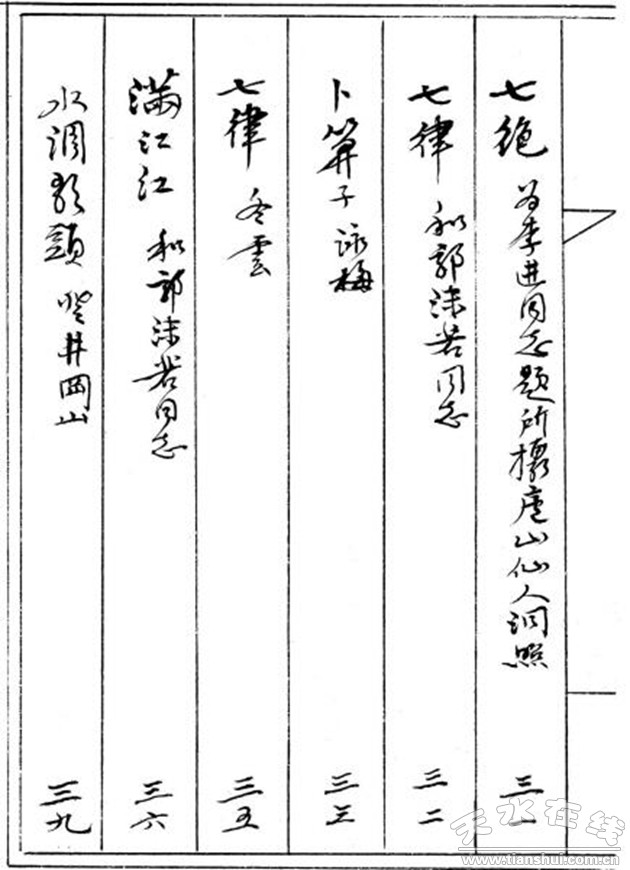 七絕 为李进同志题所攝廬山仙人洞照 三一
七律 和郭沫若同志 三二
卜算子 詠梅 三三
七律 冬雲 三五
滿江红 和郭沫若同志 三六
水调歌頭 登井岡山 三九
天水在线
www.tianshui.com.cn